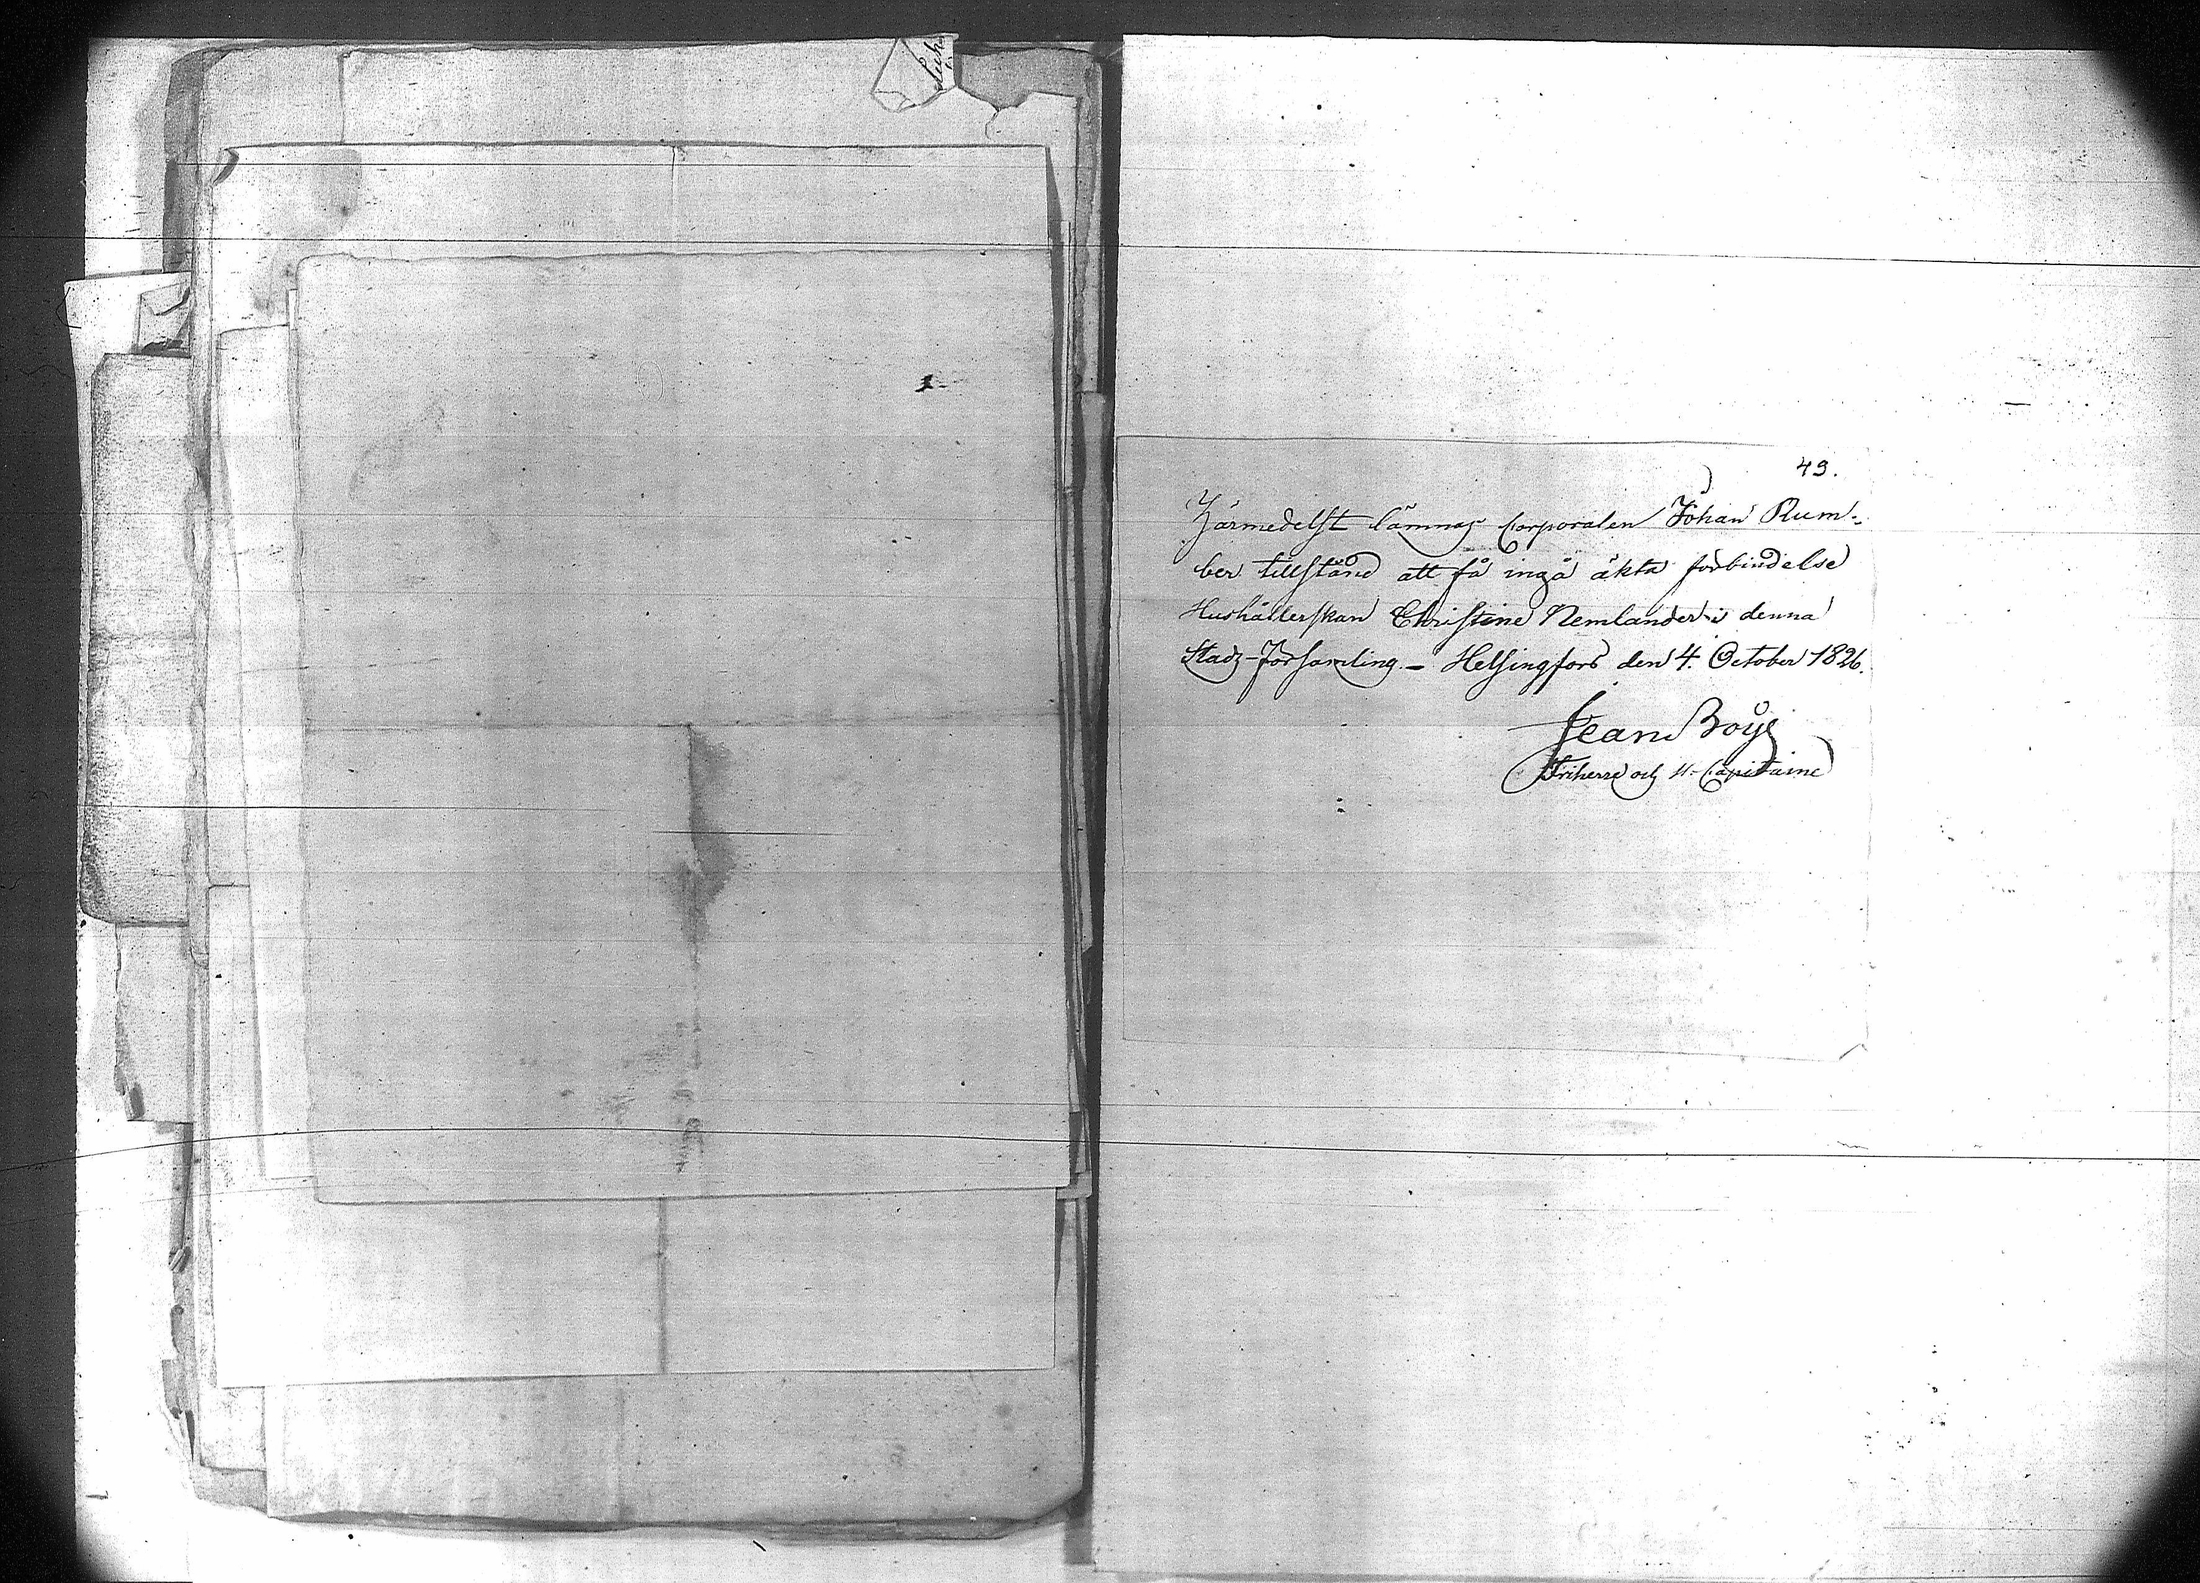 49.
Härmedelst lämnas Corporalen Johan Rum-
ber tillstånd att få ingå äkta förbindelse
Hushållerskan Christine Nemlander i denna
Stads-Församling. – Helsingfors den 4. October 1826.
Jean Boije
Friherre och St-Capitaine